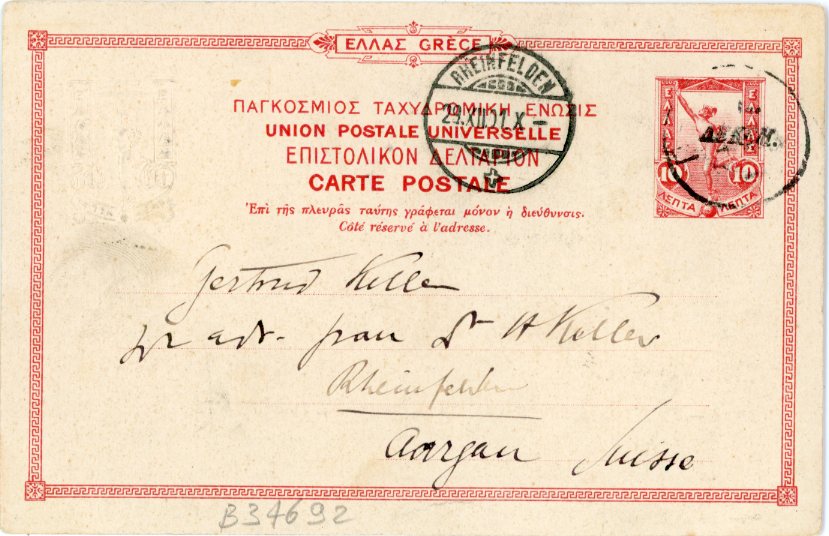 ΕΛΛΑΣ GRÈCE
ΠΑΓΚΟΣΜΙΟΣ ΤΑΧΥΔΡΟΜΙΚΗ ΕΝΩΣΙΣ
UNION POSTALE UNIVERSELLE
ΕΠΙΣΤΟΛΙΚΟΝ ΔΕΛΤΑΡΙΟΝ
CARTE POSTALE
Ἐπὶ τῆς πλευρᾶς ταύτης γράφεται μόνον ἡ διεύθυνσις.
Côté réservé à l'adresse.
RHEINFELDEN
29.XII.01.X-
ΕΛΛΑΣ
ΕΛΛΑΣ
10 10
ΛΕΠΤΑ ΛΕΠΤΑ
Gertrud Keller
adr. Frau Dr A Keller
Rheinfelden
Aargau Suisse
B34692